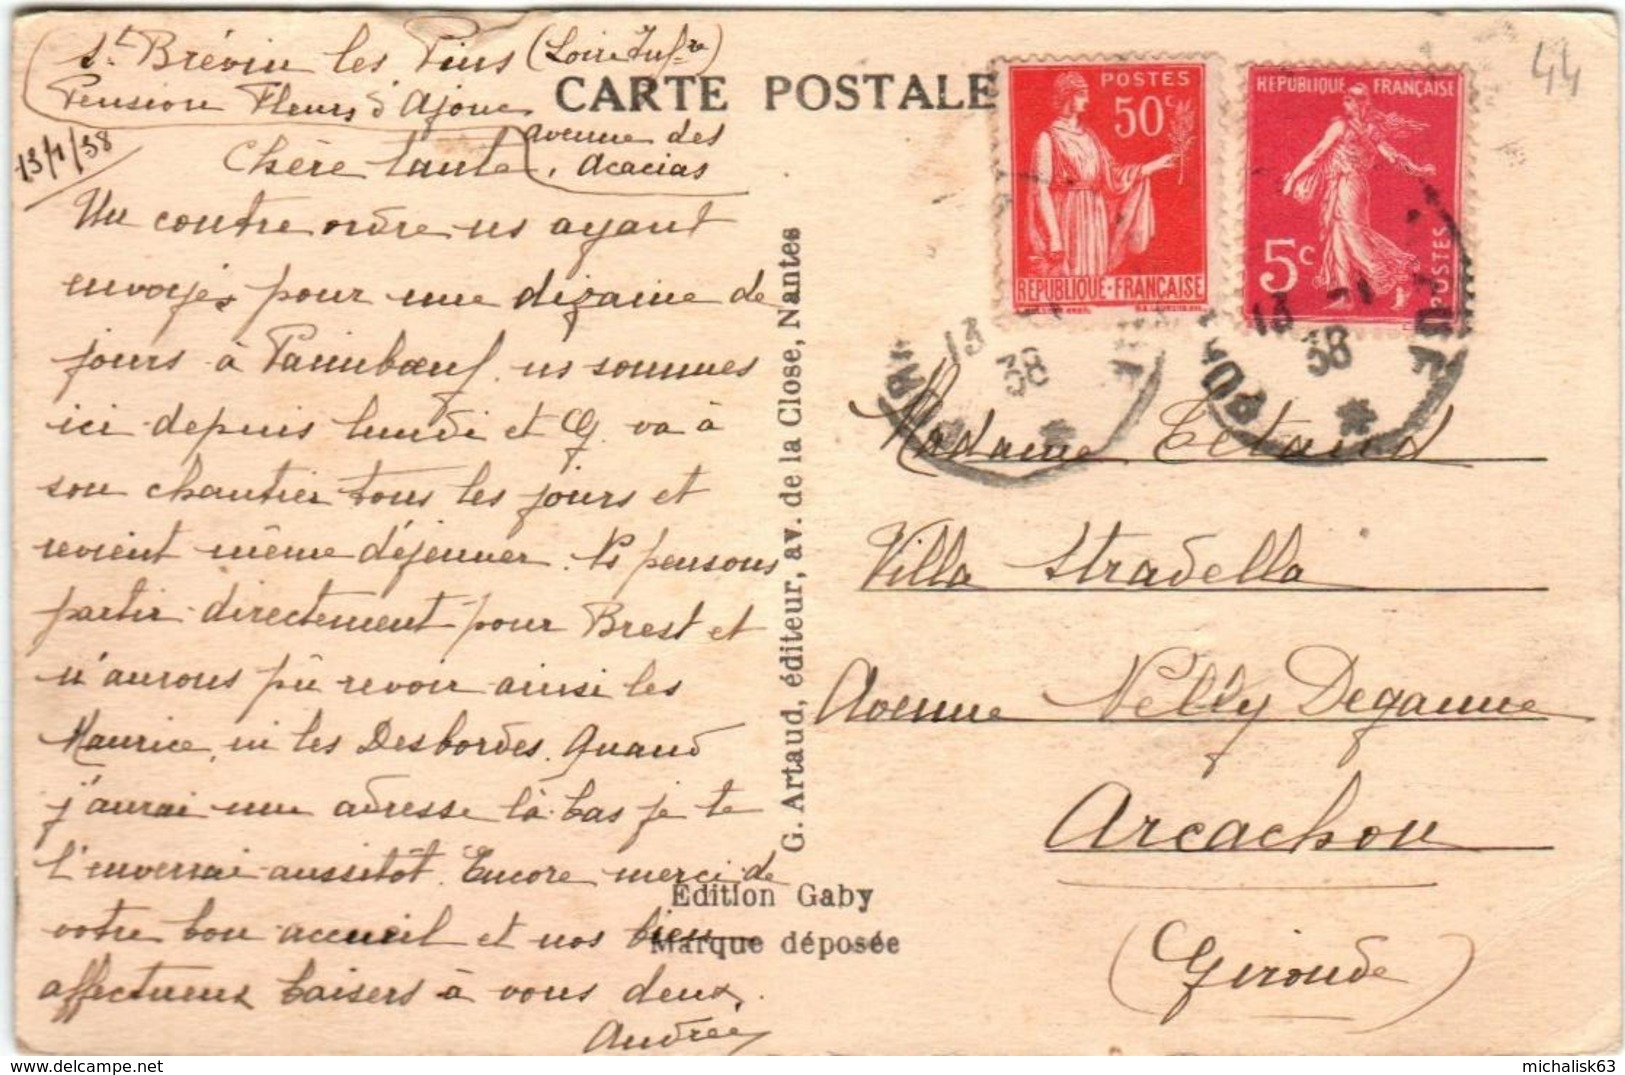 St Brévin les Pins (Loire Infre)
Pension Fleurs d'Ajonc
avenue des
acacias
13/1/38
Chère tante,
Un contre ordre ns ayant
envoyés pour une dizaine de
jours à Paimboeuf, ns sommes
ici depuis lundi et G. va à
son chantier tous les jours et
revient même déjeuner. Ns pensons
partir directement pour Brest et
n'aurons pû revoir ainsi les
Maurice, ni les Desbordes. Quand
j'aurai une adresse là-bas je te
l'enverrai aussitôt. Encore merci de
votre bon accueil et nos bien
affectueux baisers à vous deux.
Andrée
CARTE POSTALE
G. Artaud, éditeur, av. de la Close, Nantes
Edition Gaby
Marque déposée
POSTES
50c
REPUBLIQUE-FRANÇAISE
REPUBLIQUE FRANÇAISE
5c
POSTES
13
38
13 -1
38
44
Madame Tétaud
Villa Stradella
Avenue Nelly Deganne
Arcachon
(Gironde)
michalisk63